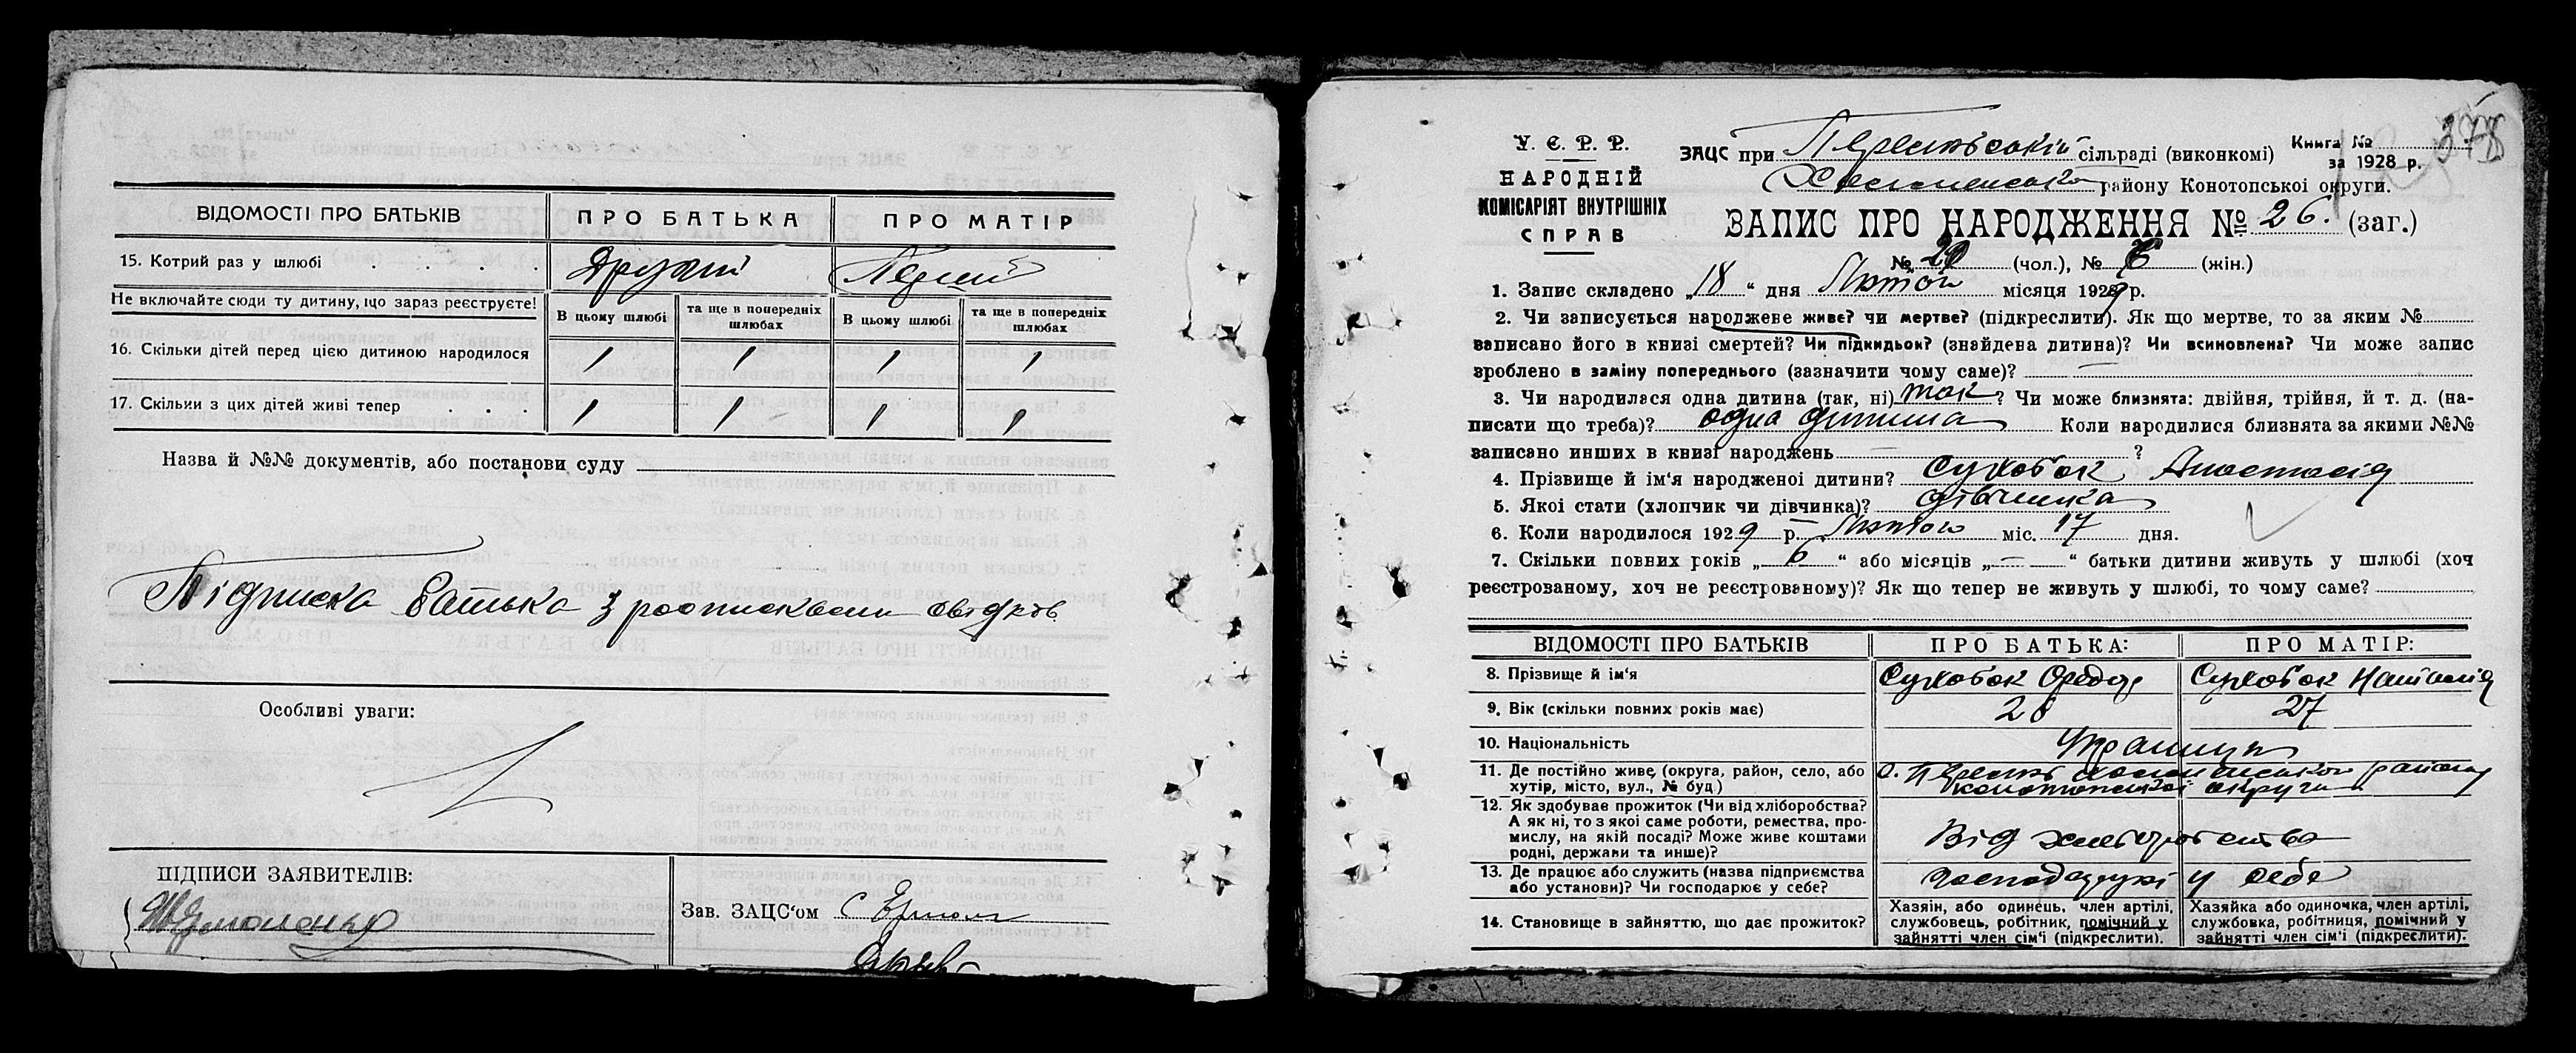 ВІДОМОСТІ ПРО БАТЬКІВ ПРО БАТЬКА ПРО МАТІР
15. Котрий раз у шлюбі Другий Перший
Не включайте сюди ту дитину, що зараз реєструєте! В цьому шлюбі та ще в попередніх шлюбах В цьому шлюбі та ще в попередніх шлюбах
16. Скільки дітей перед цією дитиною народилося / / / /
17. Скільки з цих дітей живі тепер / / / /
Назва й №№ документів, або постанови суду
Підписка батька з росписками свідків
Особливі уваги:
ПІДПИСИ ЗАЯВИТЕЛІВ:
Зав. ЗАЦС'ом
У. С. Р. Р.
НАРОДНІЙ
КОМІСАРІЯТ ВНУТРІШНІХ
СПРАВ
ЗАЦС при сільраді (виконкомі)
Книга №
за 1928 р.
378
району Конотопської округи.
ЗАПИС ПРО НАРОДЖЕННЯ № 26. (заг.)
№ (чол.), № (жін.)
1. Запис складено „18“ дня Лютого місяця 1929 р.
2. Чи записується народжене живе? чи мертве? (підкреслити). Як що мертве, то за яким №
записано його в книзі смертей? Чи підкидьок? (знайдена дитина)? Чи всиновлена? Чи може запис
зроблено в заміну попереднього (зазначити чому саме)? —
3. Чи народилася одна дитина (так, ні) так ? Чи може близнята: двійня, трійня, й т. д. (на-
писати що треба)? одна дитина Коли народилися близнята за якими №№
записано инших в книзі народжень — ?
4. Прізвище й ім'я народженої дитини? Сухобок Анастасія
5. Якої стати (хлопчик чи дівчинка)? дівчинка
6. Коли народилося 1929 р. Лютого міс. 17 дня.
7. Скільки повних років „6“ або місяців „—“ батьки дитини живуть у шлюбі (хоч
реєстрованому, хоч не реєстрованому)? Як що тепер не живуть у шлюбі, то чому саме?
ВІДОМОСТІ ПРО БАТЬКІВ ПРО БАТЬКА: ПРО МАТІР:
8. Прізвище й ім'я Сухобок Сухобок Наталія
9. Вік (скільки повних років має) 28 27
10. Національність
11. Де постійно живе (округа, район, село, або
хутір, місто, вул., № буд) конотопської округи
12. Як здобуває прожиток (Чи від хліборобства?
А як ні, то з якої саме роботи, ремества, про-
мислу, на якій посаді? Може живе коштами
родні, держави та инше)? Від хліборобства
13. Де працює або служить (назва підприємства
або установи)? Чи господарює у себе? у себе
14. Становище в зайняттю, що дає прожиток?
Хазяін, або одинець, член артілі,
службовець, робітник, помічний у
зайнятті член сім'ї (підкреслити).
Хазяйка або одиночка, член артілі,
службовка, робітниця, помічний у
зайнятті член сім'ї (підкреслити).